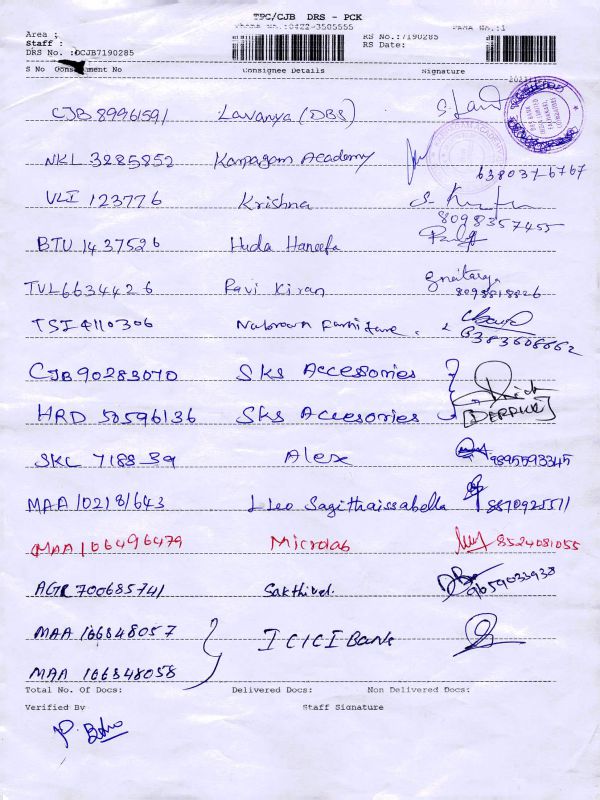 TPC/CJB DRS - PCK
Phone No.:0422-3505555
Area :
Staff :
DRS No. :DCJB7190285
RS No.:7190285
RS Date:
PAGE No.:1
S No Consignment No Consignee Details Signature
CJB 89961591 Lavanya (DBS)
NKL 3285852 Karpagam Academy 638037-6767
VLI 123776 Krishna 8098357455
BTU 1437526 Huda Haneefa
TVL6634426 Ravi Kiran 8098818826
TSI 4110306 Furniture 6383608662
CJB90283070 SKS Accessories
HRD 50596136 SKS Accesories [DERRICK]
SKC 7188 39 Alex 9895593345
MAA 102181643 L Leo Sagithaissabella 8870925511
MAA 166496479 Microlab 8524081055
AGR 700685741 Sakthivel. 9659033938
MAA 166848057 ICICI Bank
MAA 166848058
Total No. Of Docs: Delivered Docs: Non Delivered Docs:
Verified By Staff Signature